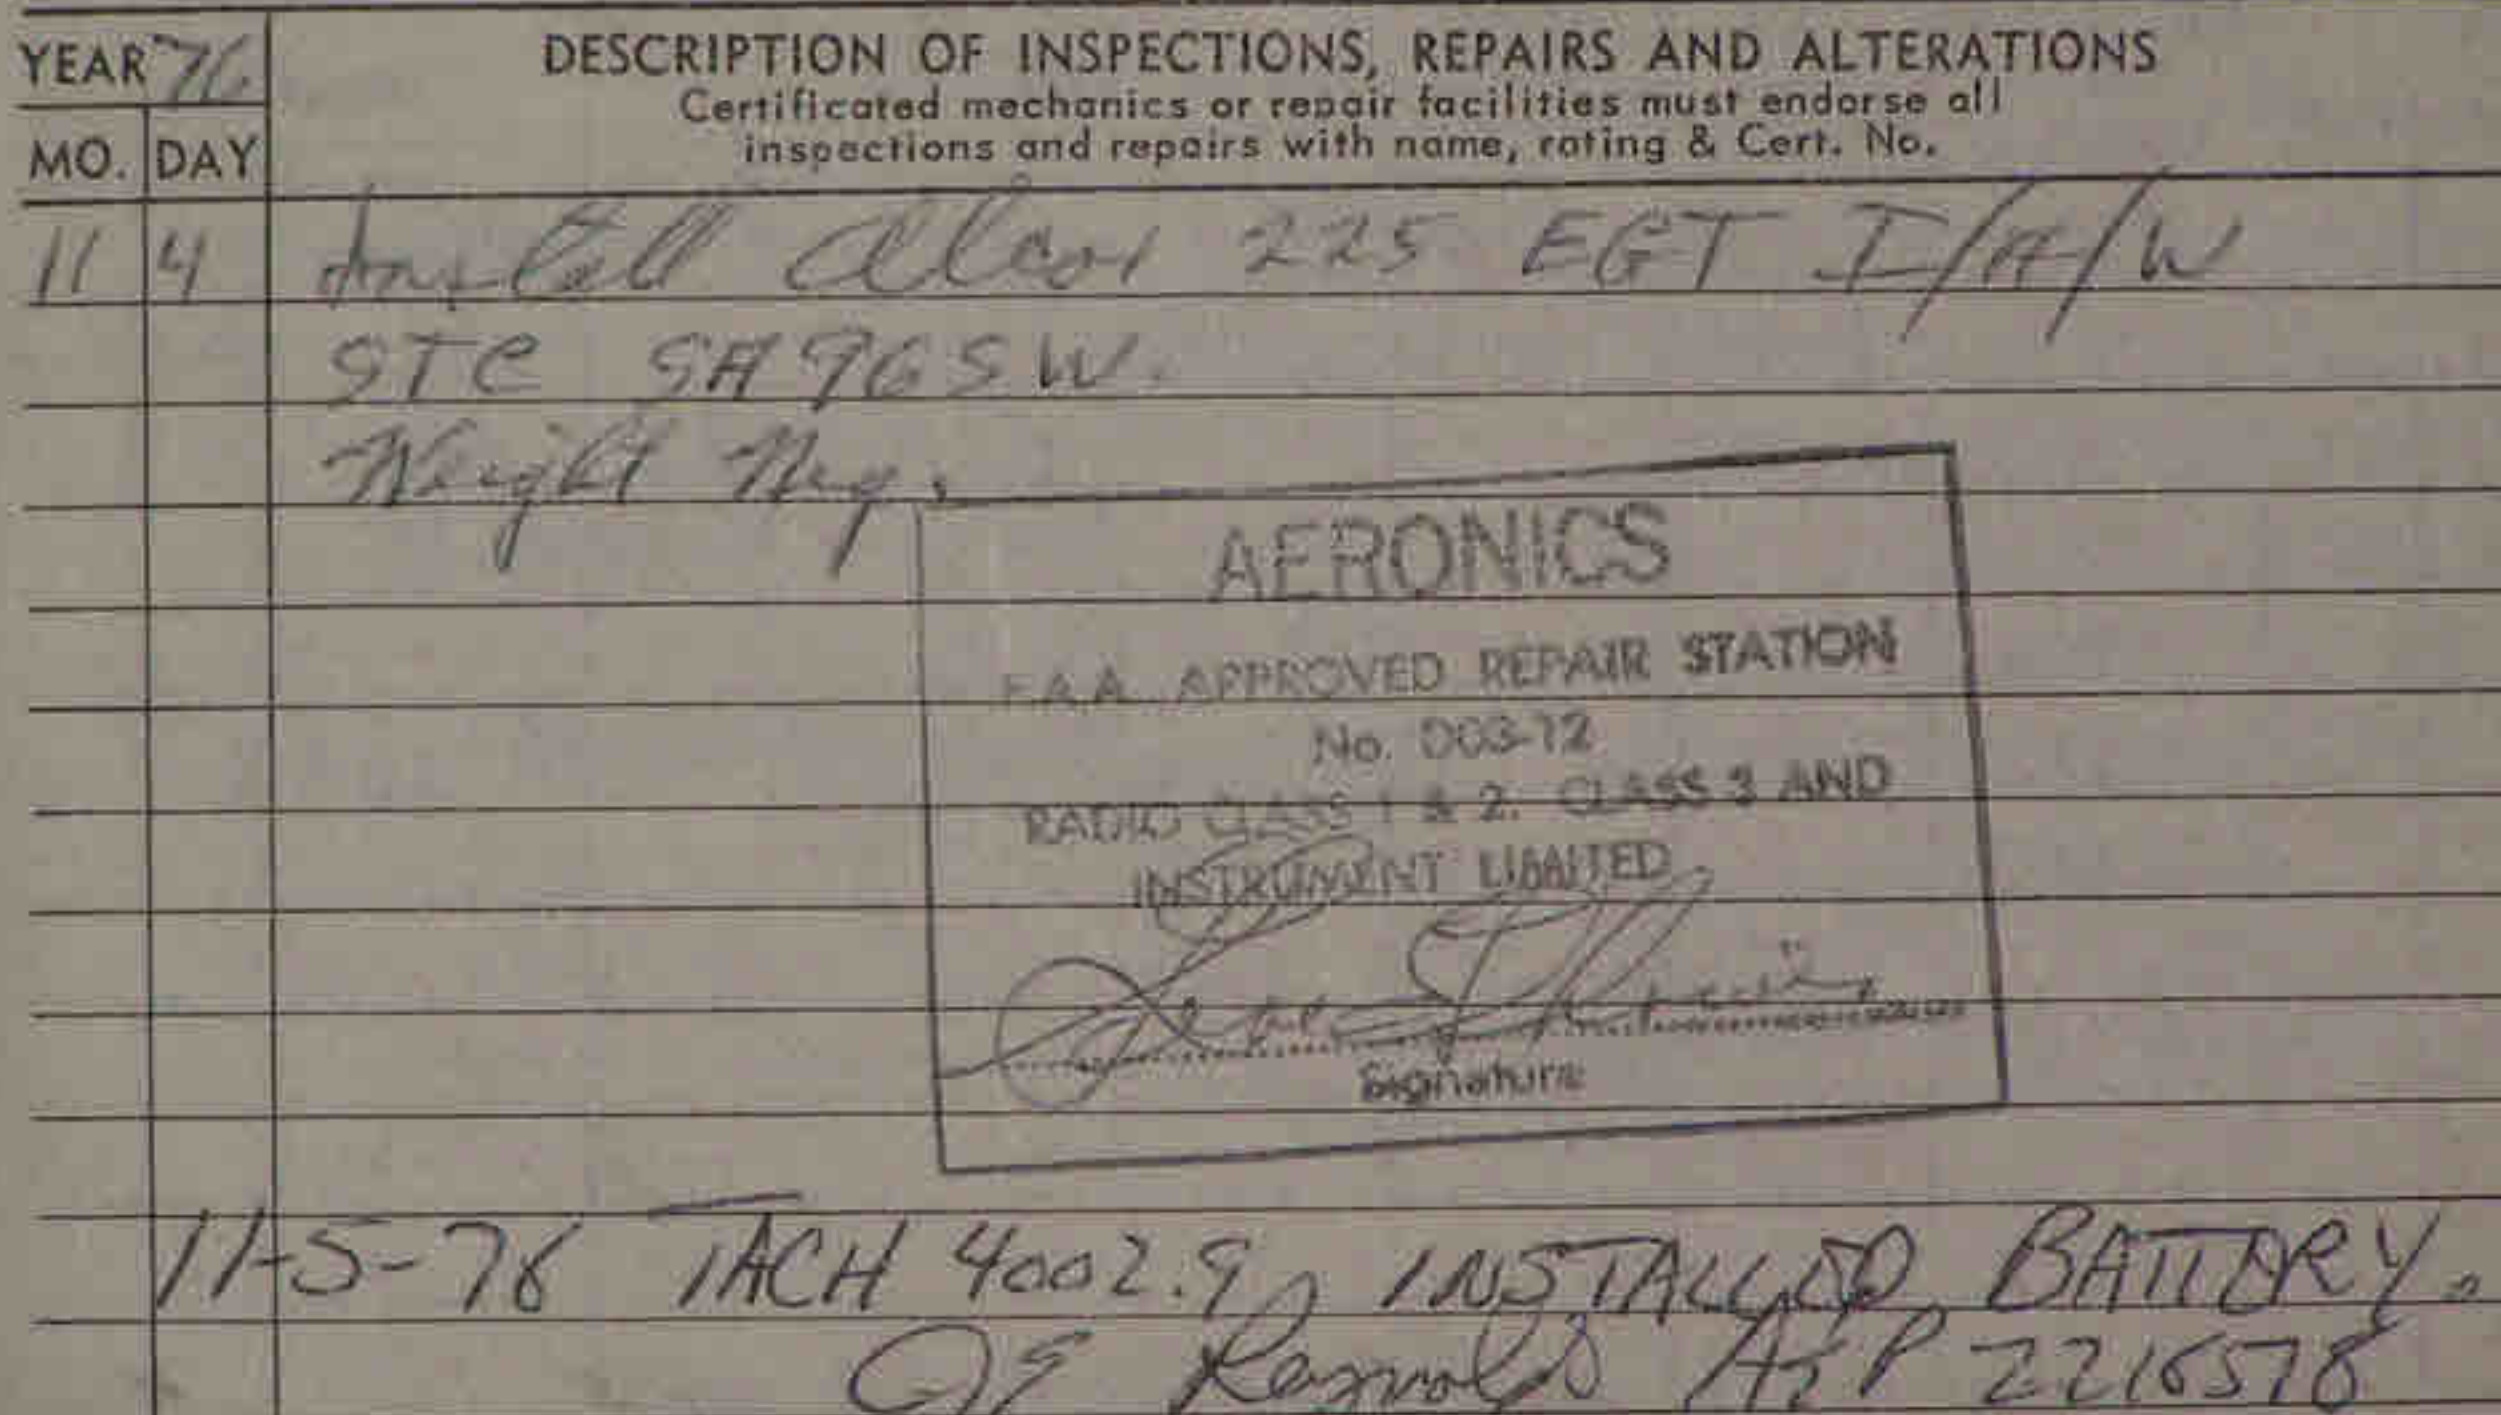 YEAR 76
DESCRIPTION OF INSPECTIONS, REPAIRS AND ALTERATIONS
Certificated mechanics or repair facilities must endorse all
inspections and repairs with name, rating & Cert. No.
MO. DAY
11 4 Install Alcor 225 EGT I/A/W
STC SA965W.
Weight Neg.
AERONICS
F.A.A. APPROVED REPAIR STATION
No.
RADIO CLASS 1 & 2. CLASS 3 AND
INSTRUMENT LIMITED
Signature
11-5-76 TACH 4002.9 INSTALLED BATTERY.
Reynolds A&P 2216578